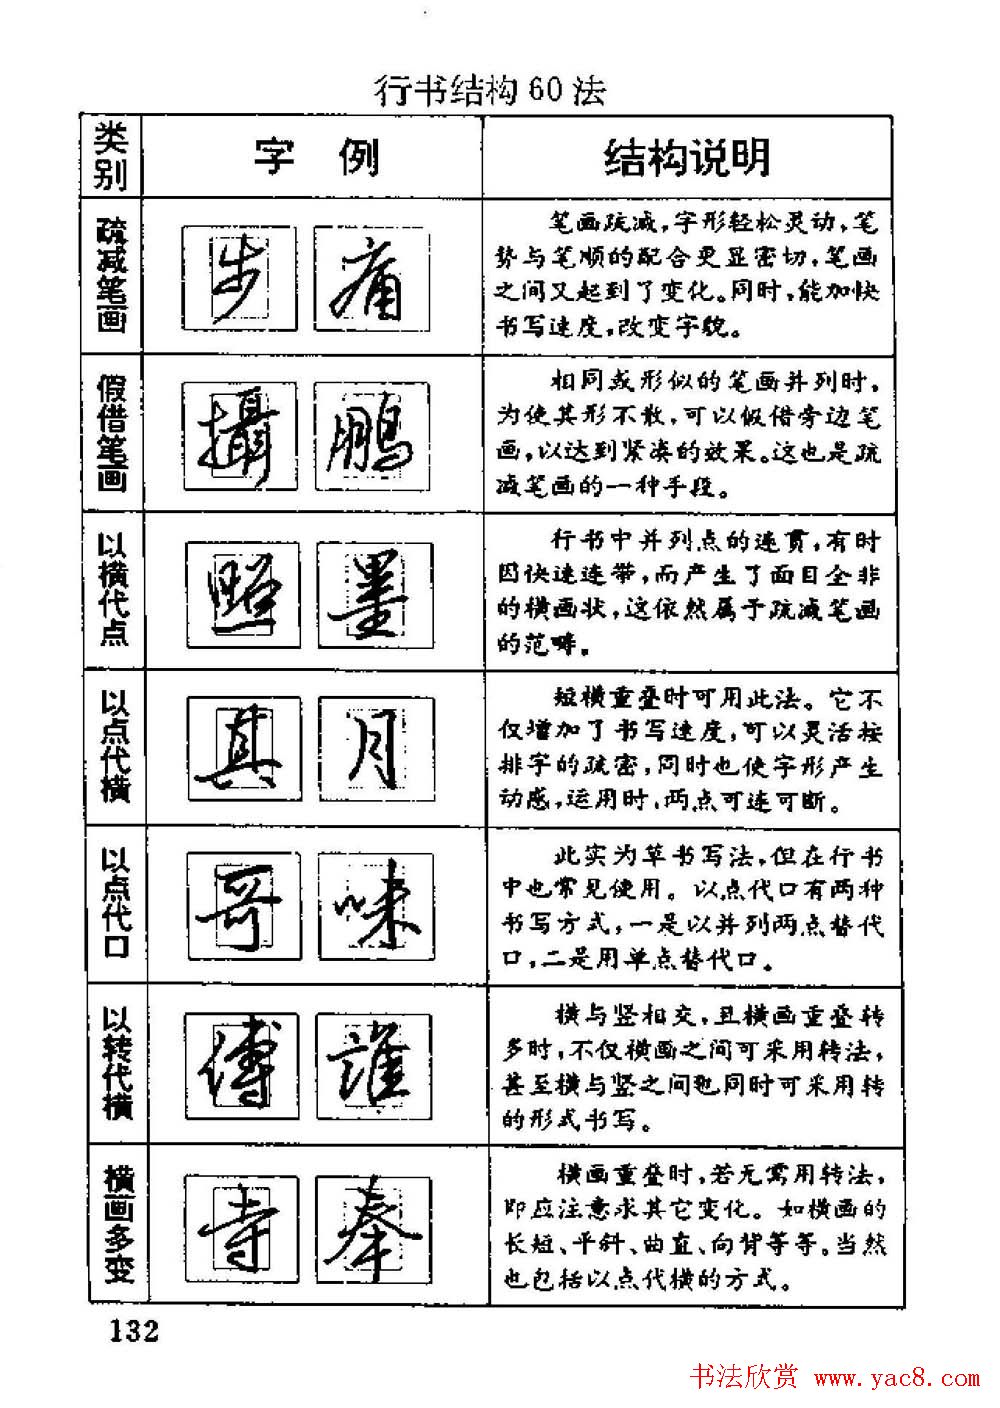 行书结构60法
类别 字 例 结构说明
疏减笔画
步 痛
笔画疏减，字形轻松灵动，笔
势与笔顺的配合更显密切，笔画
之间又起到了变化。同时，能加快
书写速度，改变字貌。
假借笔画
摄 鹏
相同或形似的笔画并列时，
为使其形不散，可以假借旁边笔
画，以达到紧凑的效果。这也是疏
减笔画的一种手段。
以横代点
照 墨
行书中并列点的连贯，有时
因快速连带，而产生了面目全非
的横画状，这依然属于疏减笔画
的范畴。
以点代横
真 月
短横重叠时可用此法。它不
仅增加了书写速度，可以灵活按
排字的疏密，同时也使字形产生
动感，运用时，两点可连可断。
以点代口
哥 味
此实为草书写法，但在行书
中也常见使用。以点代口有两种
书写方式，一是以并列两点替代
口，二是用单点替代口。
以转代横
傅 谁
横与竖相交，且横画重叠转
多时，不仅横画之间可采用转法，
甚至横与竖之间也同时可采用转
的形式书写。
横画多变
寺 奉
横画重叠时，若无需用转法，
即应注意求其它变化。如横画的
长短、平斜、曲直、向背等等。当然
也包括以点代横的方式。
132
书法欣赏 www.yac8.com